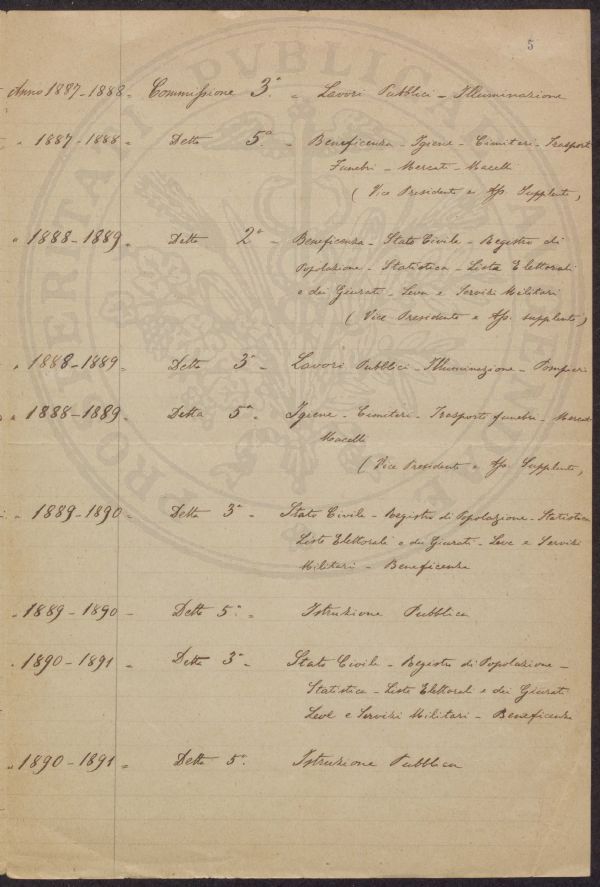 5
Anno 1887-1888 = Commissione 3ª = Lavori Pubblici - Illuminazione
" 1887-1888 = Detta 5ª = Beneficenza - Igiene - Cimiteri - Trasport
Funebri - Mercati - Macelli
(Vice Presidente e Ass. Supplente)
" 1888-1889 Detta 2ª = Beneficenza - Stato Civile - Registro di
Popolazione - Statistica - Lista Elettorali
e dei Giurati - Leva e Servizi Militari
(Vice Presidente e Ass. supplente)
" 1888-1889 = Detta 3ª = Lavori Pubblici - Illuminazione - Pompieri
" 1888-1889 = Detta 5ª = Igiene - Cimiteri - Trasporti funebri - Mercati
Macelli
(Vice Presidente e Ass. Supplente)
" 1889-1890 = Detta 3ª = Stato Civile - Registro di Popolazione - Statistica
Liste Elettorali e dei Giurati - Leve e Servizi
Militari - Beneficenza
" 1889-1890 - Detta 5ª = Istruzione Pubblica
" 1890-1891 = Detta 3ª = Stato Civile - Registro di Popolazione -
Statistica - Liste Elettorali e dei Giurati
Leve e Servizi Militari - Beneficenza
" 1890-1891 = Detta 5ª Istruzione Pubblica